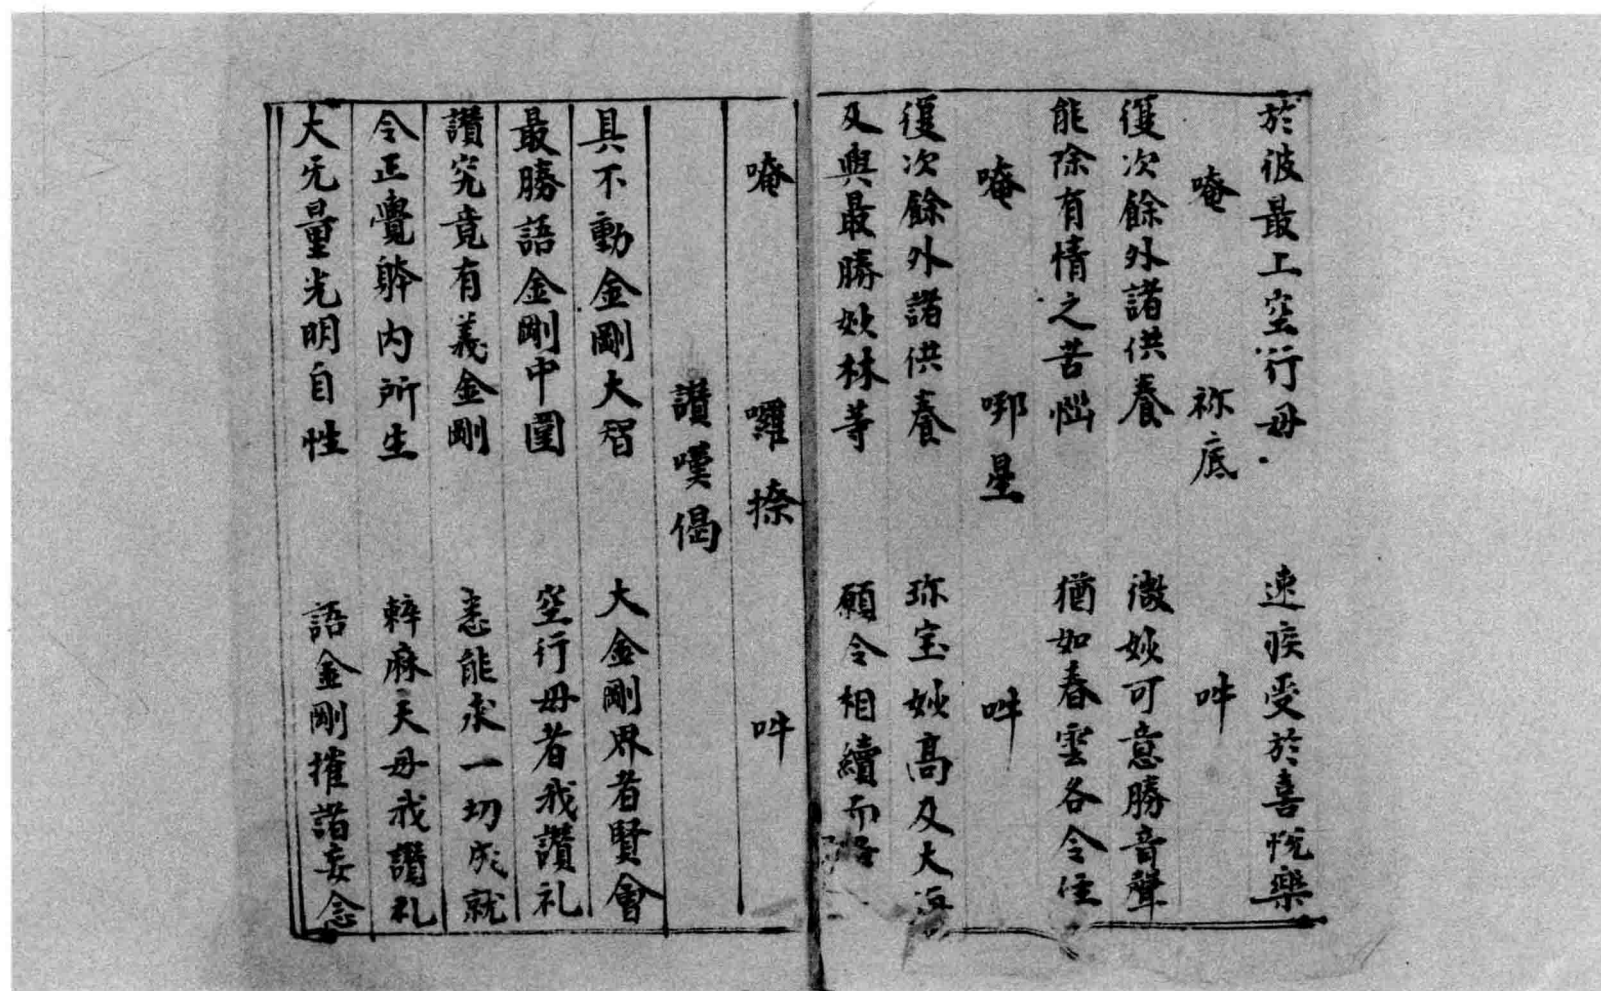 於彼最上空行母　速疾受於喜悅樂
唵　祢底　吽
復次餘外諸供養　微妙可意勝音聲
能除有情之苦惱　猶如春雲各令住
唵　哪星　吽
復次餘外諸供養　珎宝妙高及大海
及與最勝妙林等　願令相續而
唵　囉捺　吽
讃嘆偈
具不動金剛大智　大金剛界者賢會
最勝語金剛中圍　空行母者我讃礼
讃究竟有義金剛　悉能求一切成就
令正覺躰内所生　辢麻天母我讃礼
大无量光明自性　語金剛摧諸妄念